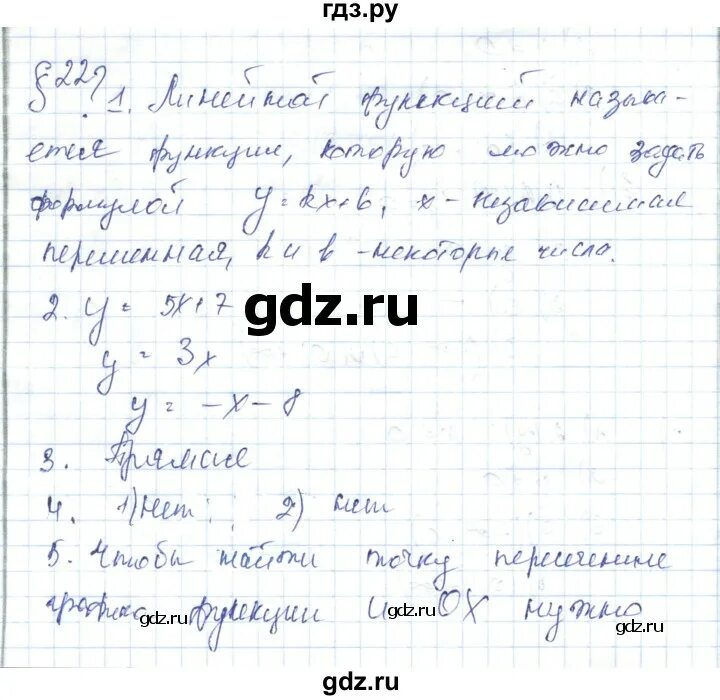 гдз.ру
§ 22? 1. Линейной функцией называ-
ется функция, которую можно задать
формулой y = kx + b, x - независимая
переменная, k и b - некоторые числа.
2. y = 5x + 7
gdz.ru
y = 3x
y = -x - 8
3. Прямые
4. 1) нет; 2) нет
5. Чтобы найти точку пересечение
графика функции и OX нужно
gdz.ru
gdz.ru
gdz.ru